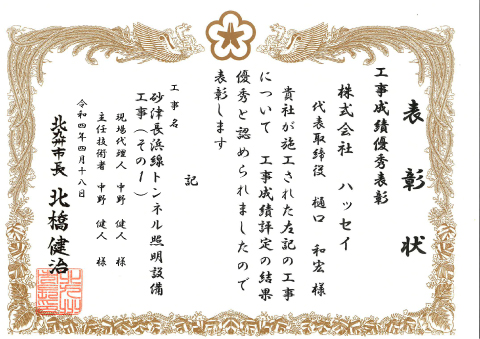 表彰状
工事成績優秀表彰
株式会社 ハッセイ
代表取締役 樋口 和宏 様
貴社が施工された左記の工事
について 工事成績評定の結果
優秀と認められましたので
表彰します
記
工事名
砂津長浜線トンネル照明設備
工事(その1)
現場代理人 中野 健人 様
主任技術者 中野 健人 様
令和四年四月十八日
北九州市長 北橋健治